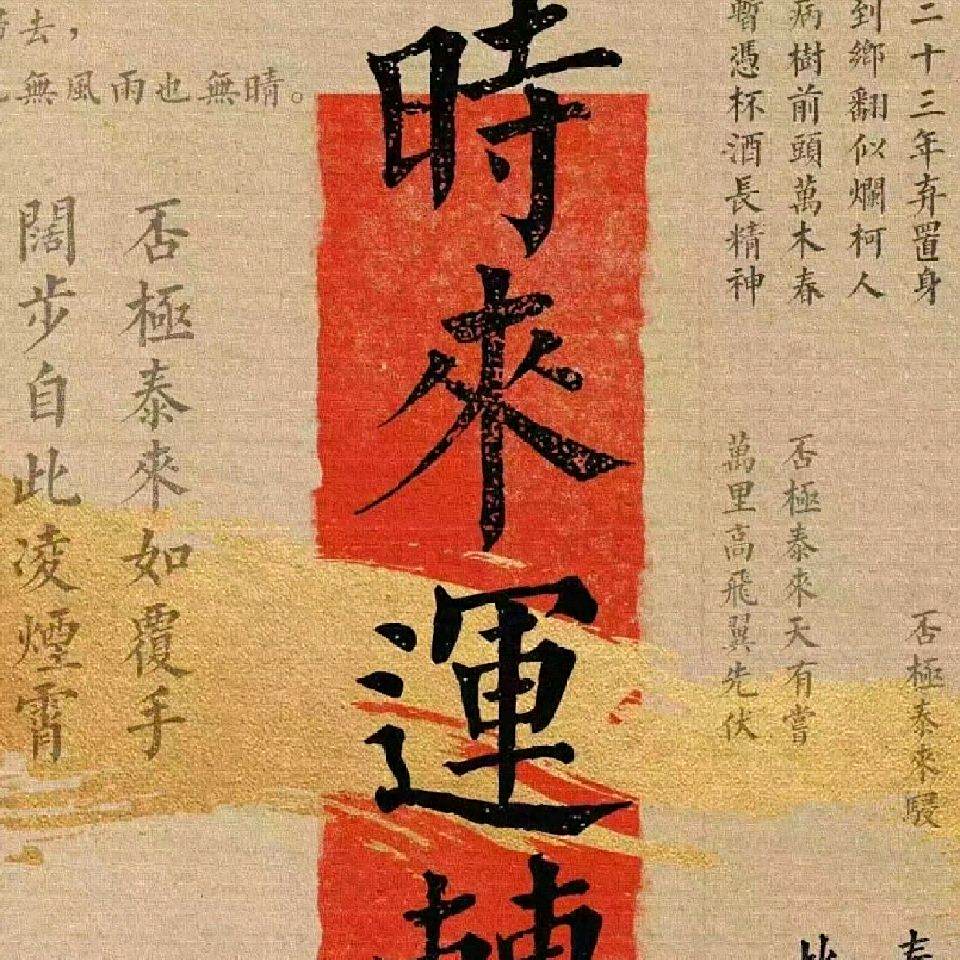 時來運轉
二十三年弃置身
到鄉翻似爛柯人
病樹前頭萬木春
暫憑杯酒長精神
否極泰來
否極泰來天有嘗
萬里高飛翼先伏
去，
無風雨也無晴。
否極泰來如覆手
闊步自此凌煙霄